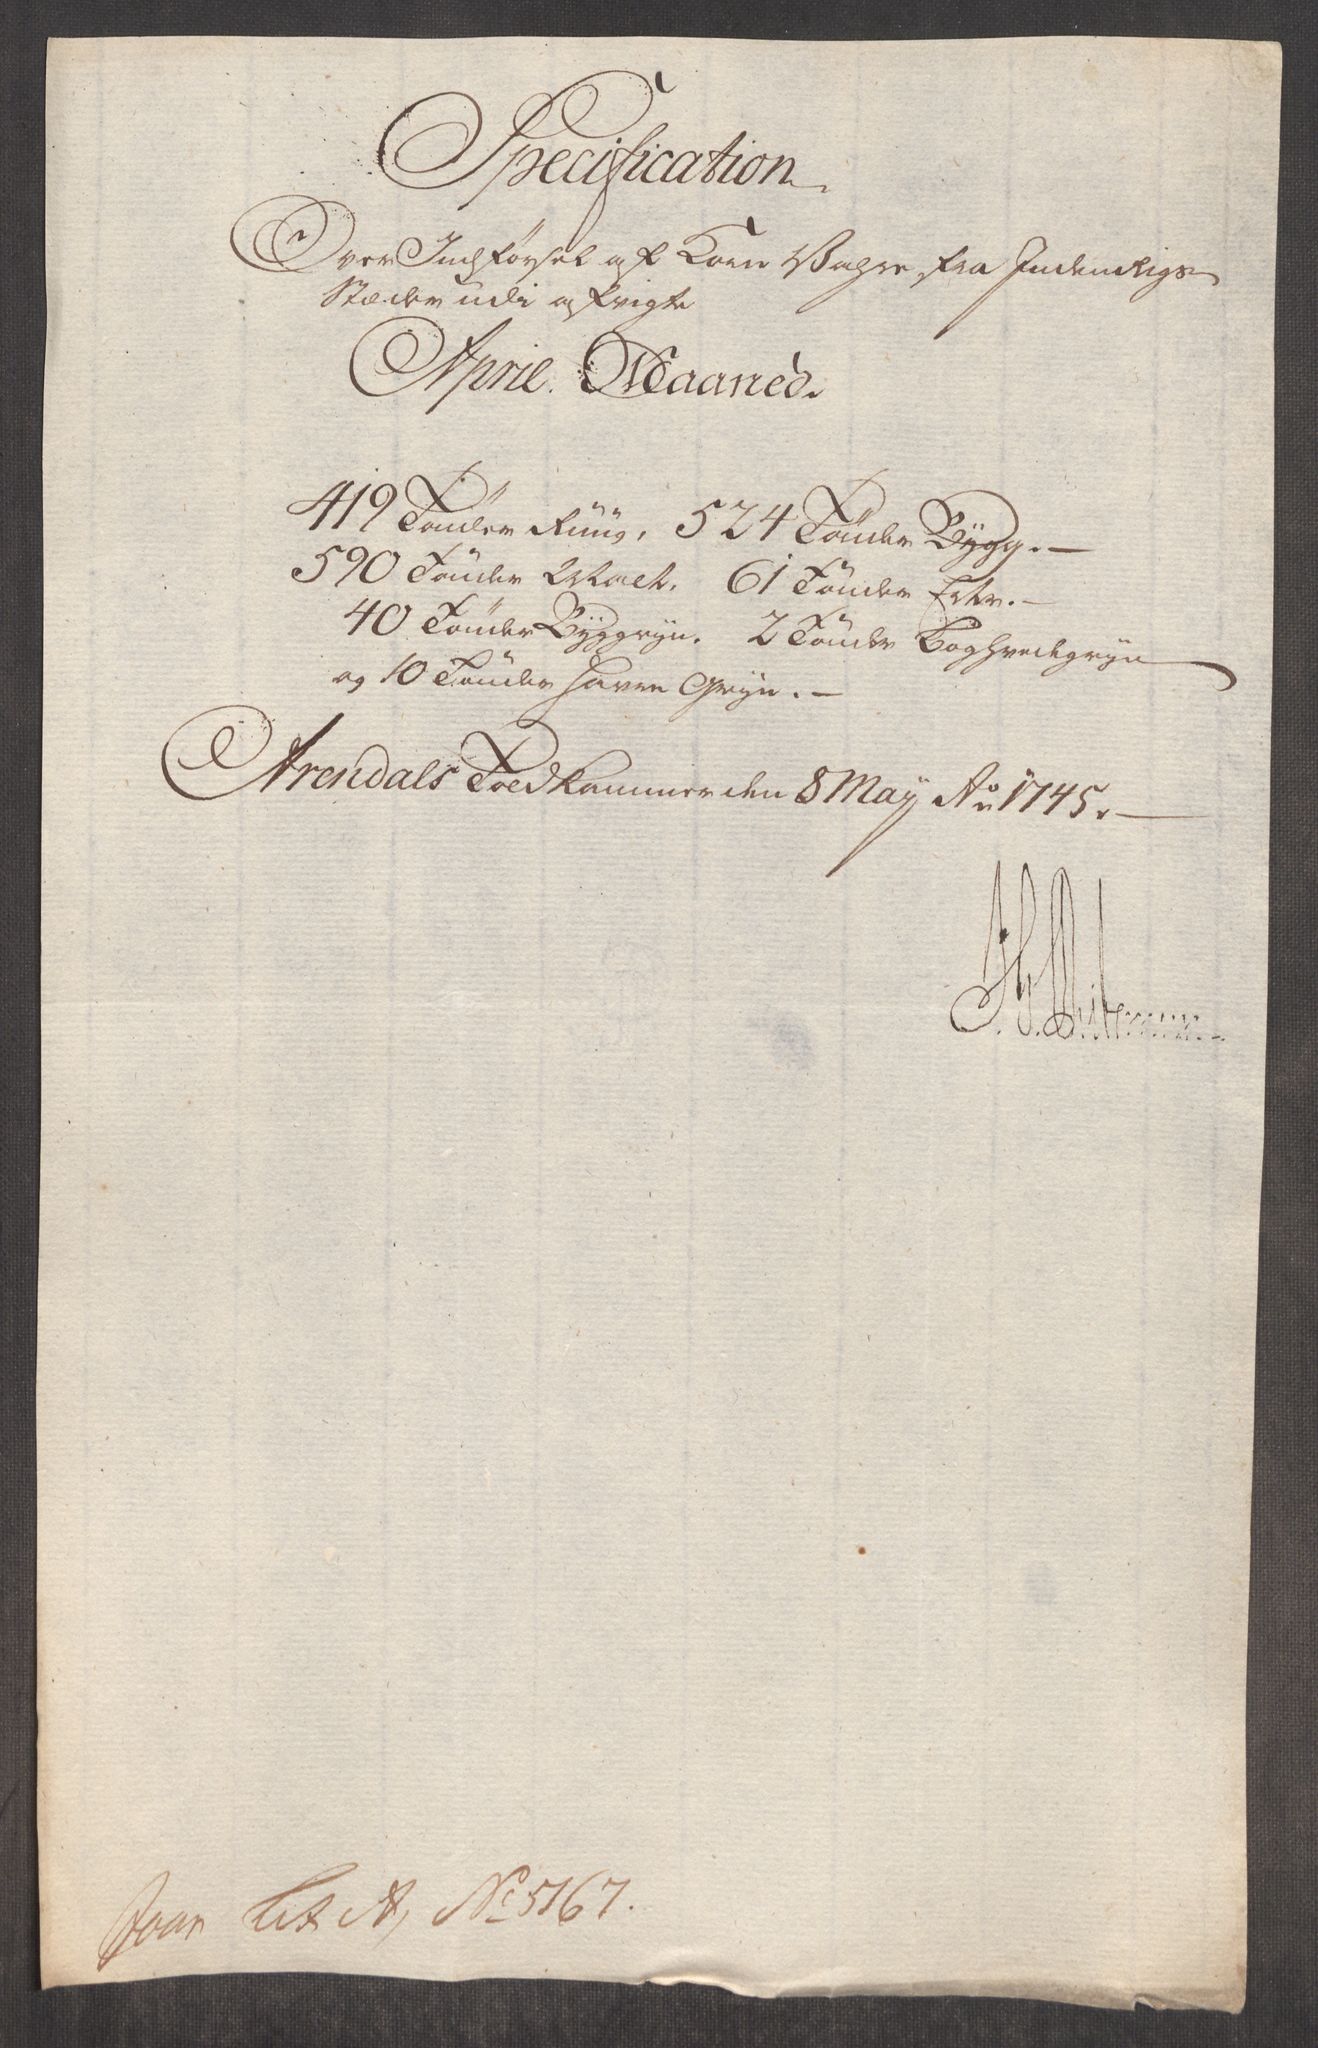 Specification
Over Indførsel af Korn Vahre fra Indenrigs
Stæder udi afvigte
April. Maaned.
419 Tønder Rüüg, 524 Tønder Bÿgg.
590 Tønder Malt. 61 Tønder Erter.
40 Tønder Bÿggrÿn. 2 Tønder Boghvedegrÿn
og 10 Tønder Havre Grÿn.
Arendals Toldkammer den 8 Maÿ Ao 1745.
Lit A, No 5167.